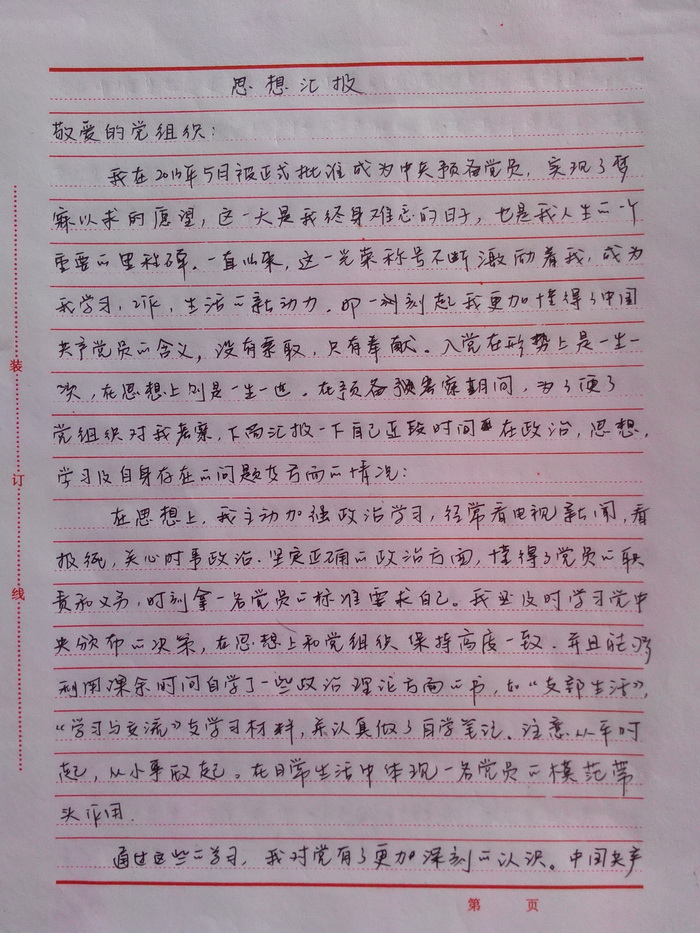 思想汇报
敬爱的党组织：
我在2013年5月被正式批准成为中共预备党员，实现了梦
寐以求的愿望，这一天是我终身难忘的日子，也是我人生的一个
重要的里称碑。一直以来，这一光荣称号不断激励着我，成为
我学习，工作，生活的新动力。那一刹刻起我更加懂得了中国
共产党员的含义，没有索取，只有奉献。入党在形势上是一生一
次，在思想上则是一生一世。在预备考察期间，为了便于
党组织对我考察，下面汇报一下自己近段时间在政治，思想，
学习及自身存在的问题方面的情况：
在思想上，我主动加强政治学习，经常看电视新闻，看
报纸，关心时事政治。坚定正确的政治方面，懂得了党员的职
责和义务，时刻拿一名党员的标准要求自己。我还及时学习党中
央颁布的决策，在思想上和党组织保持高度一致。并且能够
利用课余时间自学了一些政治理论方面的书，如“支部生活”，
“学习与交流”支学习材料，并认真做了自学笔记。注意从平时
起，从小事做起。在日常生活中体现一名党员的模范带
头作用。
通过这些的学习，我对党有了更加深刻的认识。中国共产
装
订
线
第 页